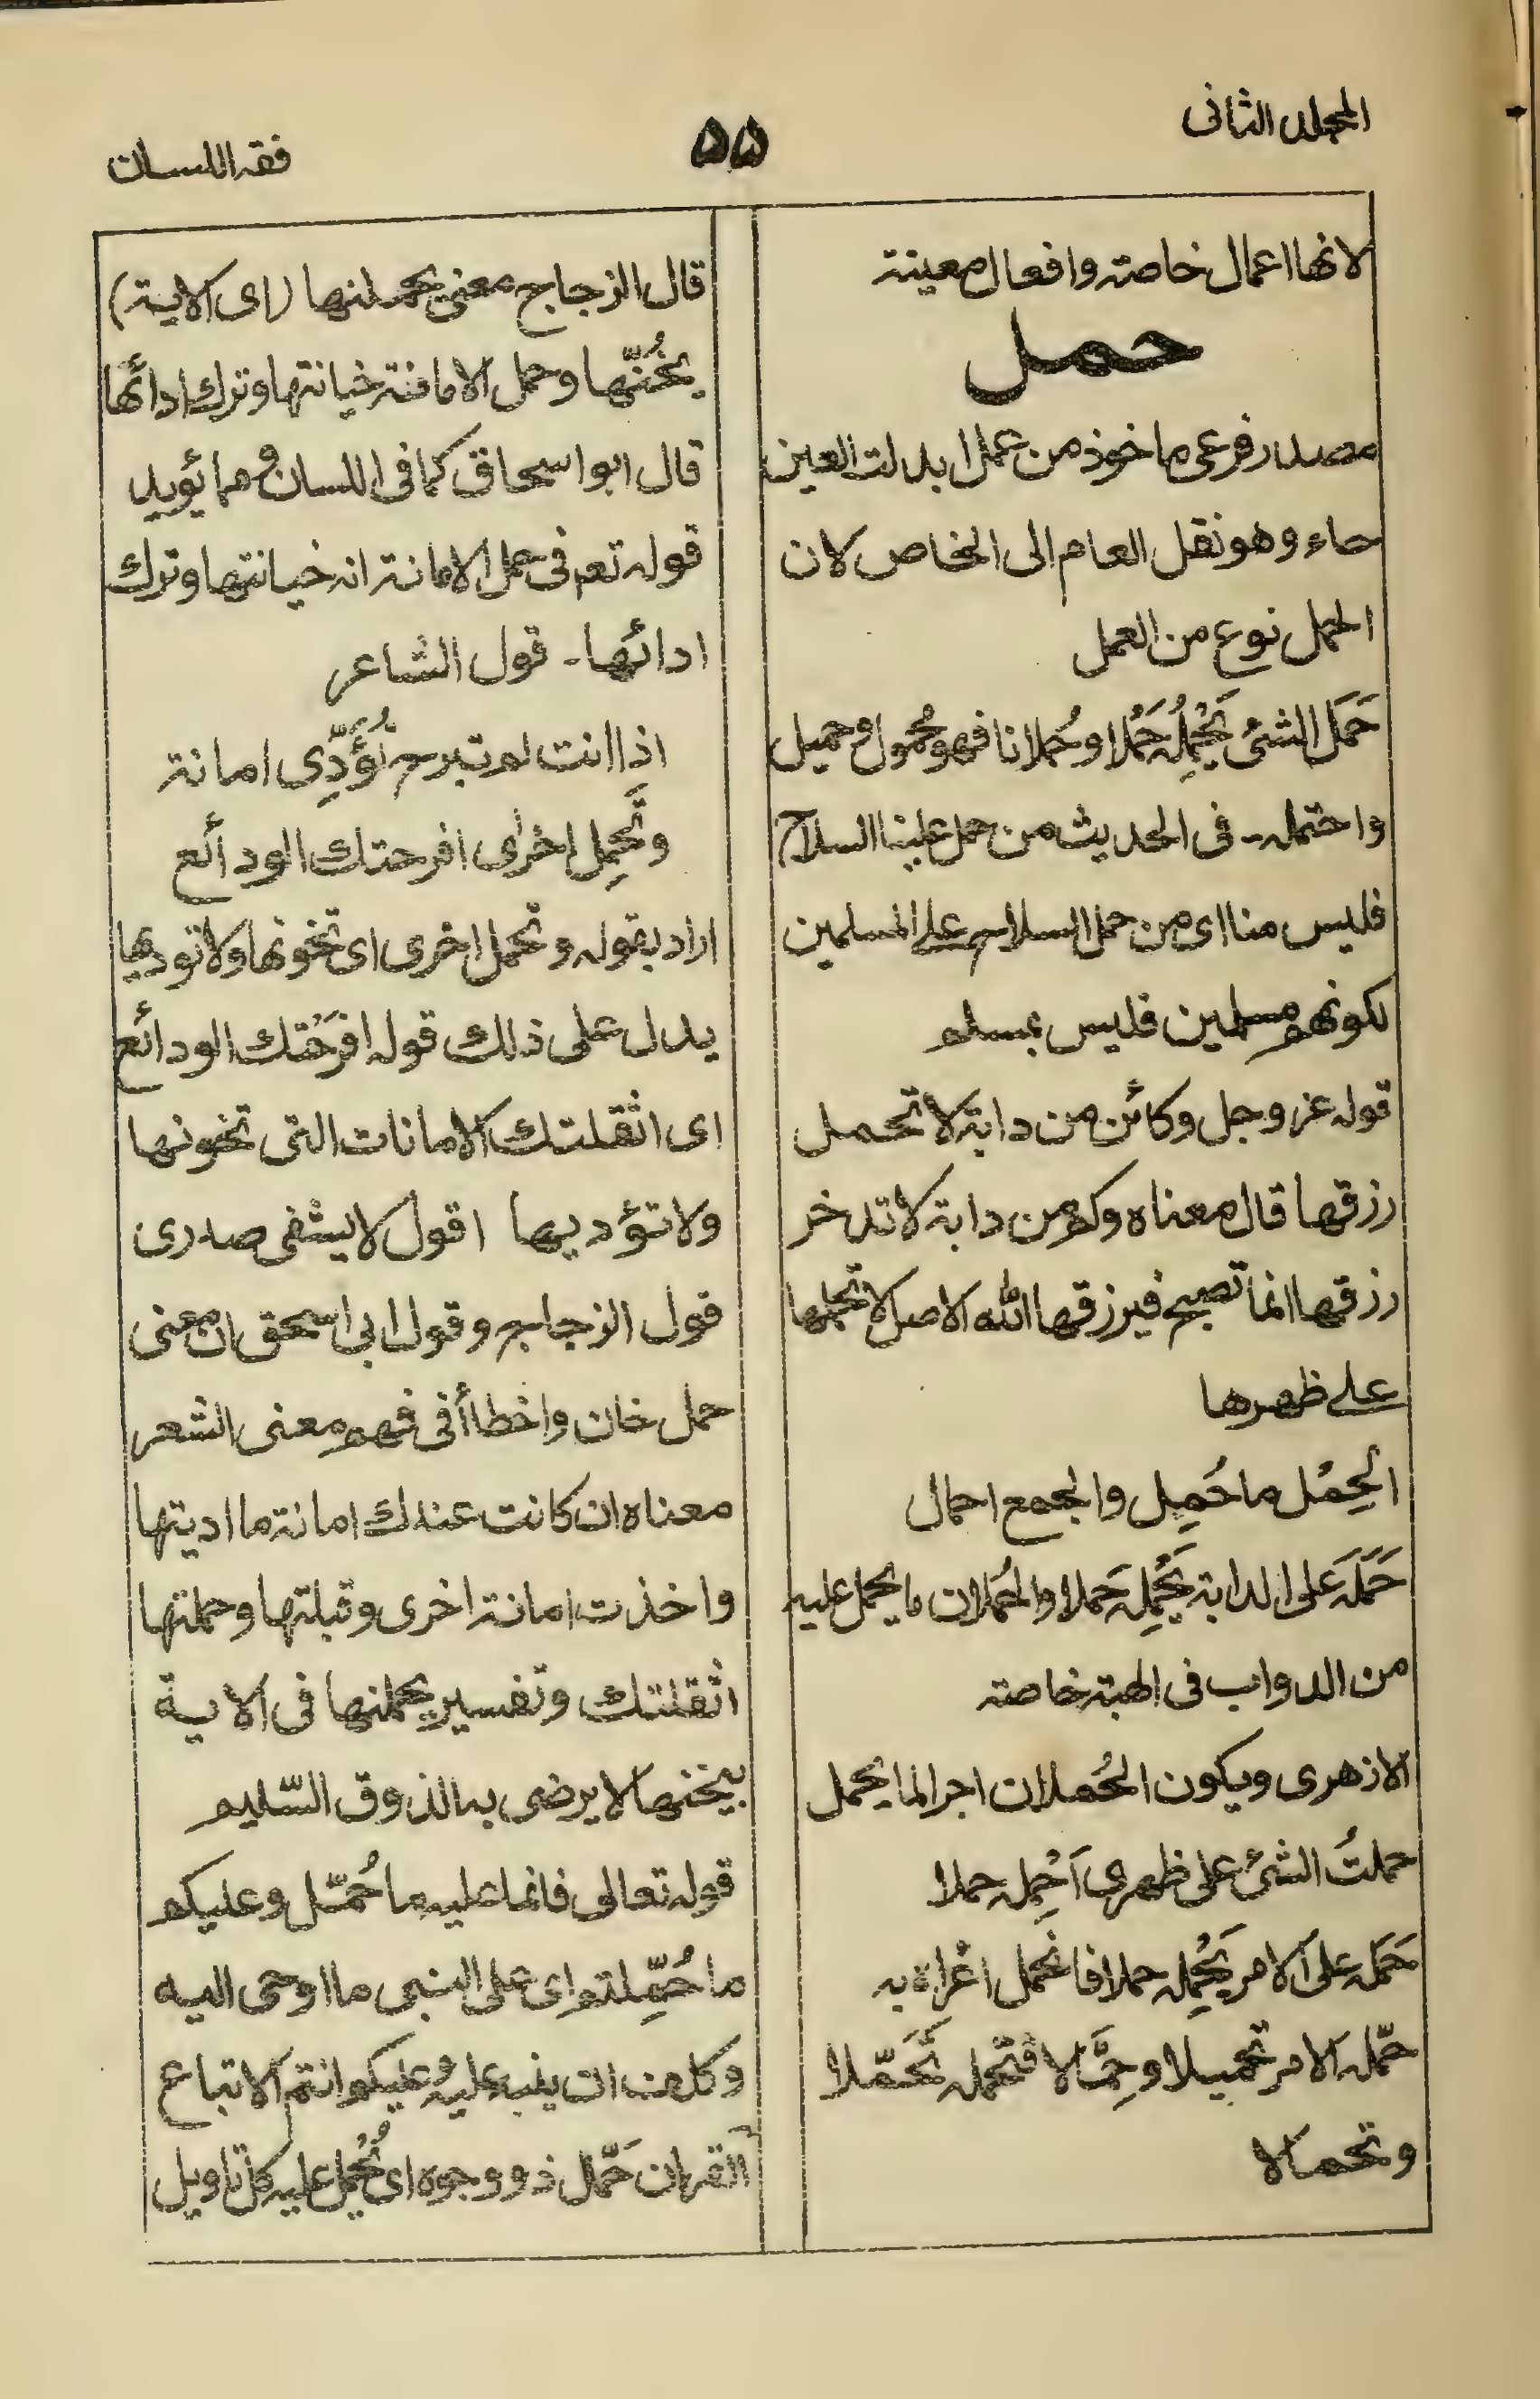 المجلد الثانى
٥٥
فقه اللسان
لانها اعمال خاصة وافعال معينة
حمل
مصدر فرعى ماخوذ من عمل ابدلت العين
حاء وهو نقل العام الى الخاص لان
الحمل نوع من العمل
حَمَل الشئ يَحْمِلُه حَمْلا وحُملانا فهو محُمول و حميل
واحتمله۔ فى الحديث من حمل علينا السلاح
فليس منا اى من حمل السلاح علے المسلمين
لكونهم مسلمين فليس بمسلم
قوله عز وجل وكائن من دابة لا تحمل
رزقها قال معناه وكم من دابة لا تدخر
رزقها انما تصبح فيرزقها الله الاصل لا تحملها
علے ظهرها
الحِمْل ما حُمِل والجمع احمال
حَمَلَه عَلى الدابة يَحْمِله حَملا والحُملان ما يحمل عليه
من الدواب فى الهبة خاصة
الازهرى ويكون الحُملان اجرا لما يحمل
حملتُ الشئ على ظهرى اَحْمِله حملا
حَمَله على الامر يَحْمِله حملا فانحمل اغراه به
حمّله الامر تحميلا وحِمّالا فتحمله تَحَمّلا
وتحمالا
قال الزجاج معنى يحملنها (اى الاية)
يخُنّها وحمل الامانة خيانتها وترك ادائها
قال ابو اسحاق كما فى اللسان و مما يؤيد
قوله تعم فى حمل الامانة انه خيانتها وترك
ادائها۔ قول الشاعر
اذا انت لم تبرح تُؤَدِّى امانة
وتَحْمِل اخرٰى افرحتك الودائع
اراد بقوله وتحمل اخرى اى تخونها ولا توديها
يدل على ذلك قوله افرَحَتك الودائع
اى اثقلتك الامانات التى تخونها
ولا تؤديها اقول لا يشفى صدرى
قول الزجاج وقول ابى اسحق ان معنى
حمل خان واخطأ فى فهم معنى الشعر
معناه ان كانت عندك امانة ما اديتها
واخذت امانة اخرى وقبلتها وحملتها
اثقلتك وتفسير يحملنها فى الاية
بيخنها لا يرضى به الذوق السّليم
قوله تعالى فانما عليه ما حُمّل وعليكم
ما حُمِّلتم اى على النبى ما اوحى اليه
وكلف ان ينبه عليه و عليكم انتم الاتباع
القران حَمّال ذو وجوه اى يُحْمَل عليه كل تاويل